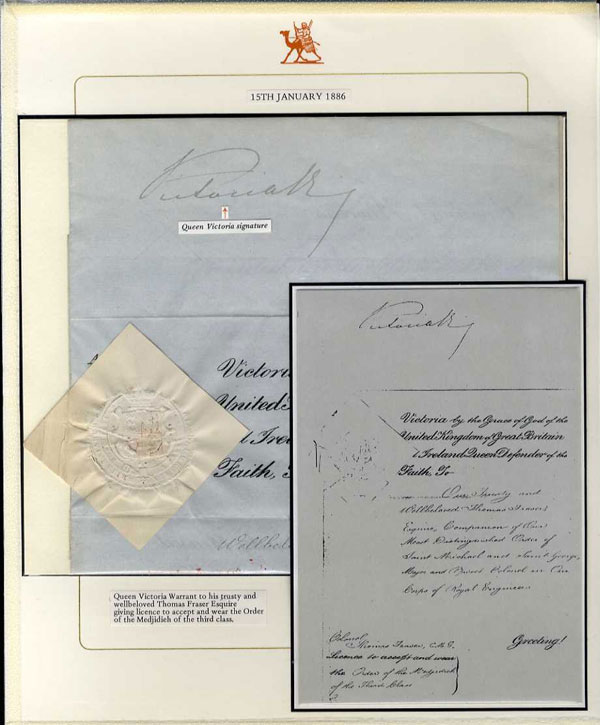 15TH JANUARY 1886
Victoria RI
Queen Victoria signature
Victori
United
& Irel
Faith,
Wellbelo
Queen Victoria Warrant to his trusty and
wellbeloved Thomas Fraser Esquire
giving licence to accept and wear the Order
of the Medjidieh of the third class.
Victoria RI
Victoria by the Grace of God of the
United Kingdom of Great Britain
& Ireland, Queen Defender of the
Faith, To
Our Trusty and
Wellbeloved Thomas Fraser
Esquire, Companion of Our
Most Distinguished Order of
Saint Michael and Saint George,
Major and Brevet Colonel in Our
Corps of Royal Engineers
Greeting!
Colonel
Thomas Fraser, C.M.G.
Licence to accept and wear
the Order of the Medjidieh
of the Third Class